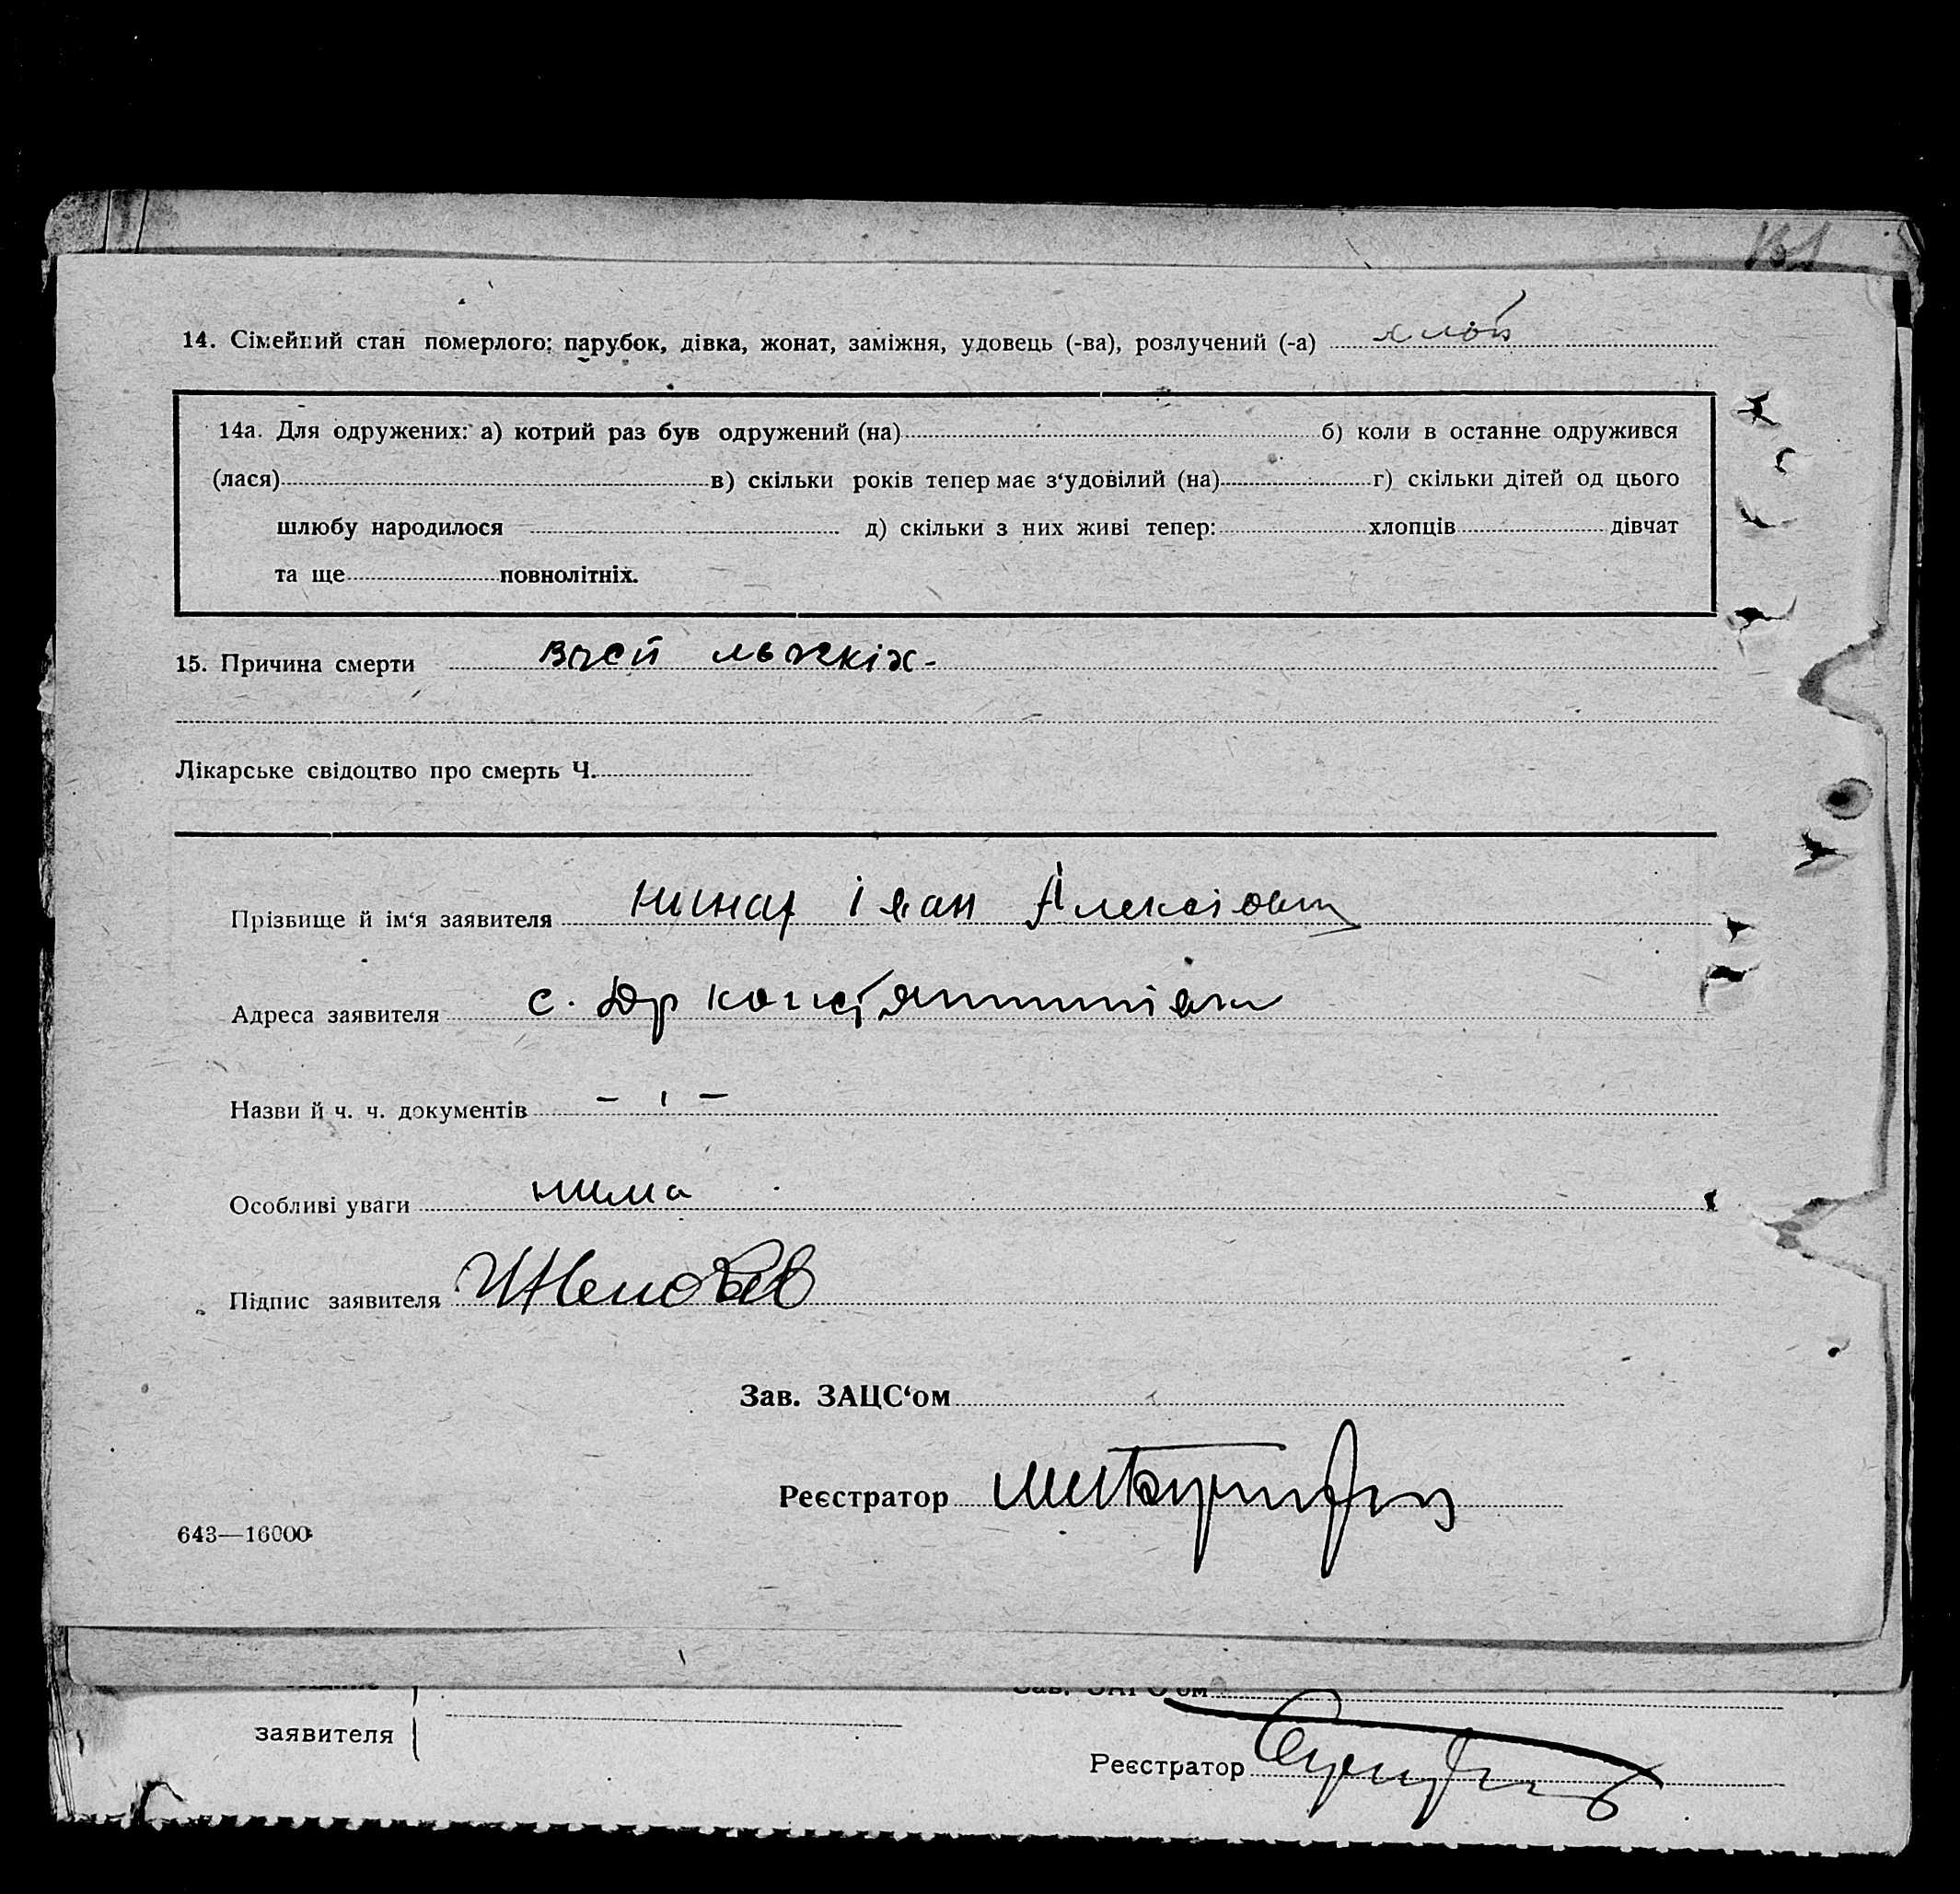 14. Сімейний стан померлого: парубок, дівка, жонат, заміжня, удовець (-ва), розлучений (-а)
14а. Для одружених: а) котрий раз був одружений (на) б) коли в останнє одружився
(лася) в) скільки років тепер має з‘удовілий (на) г) скільки дітей од цього
шлюбу народилося д) скільки з них живі тепер: хлопців дівчат
та ще повнолітніх.
15. Причина смерти
Лікарське свідоцтво про смерть Ч.
Прізвище й ім‘я заявителя Іван Алексіович
Адреса заявителя с.
Назви й ч. ч. документів – ı –
Особливі уваги нима
Підпис заявителя
Зав. ЗАЦС‘ом
Реєстратор
643—16000
Зав. ЗАГС‘ом
заявителя
Реєстратор